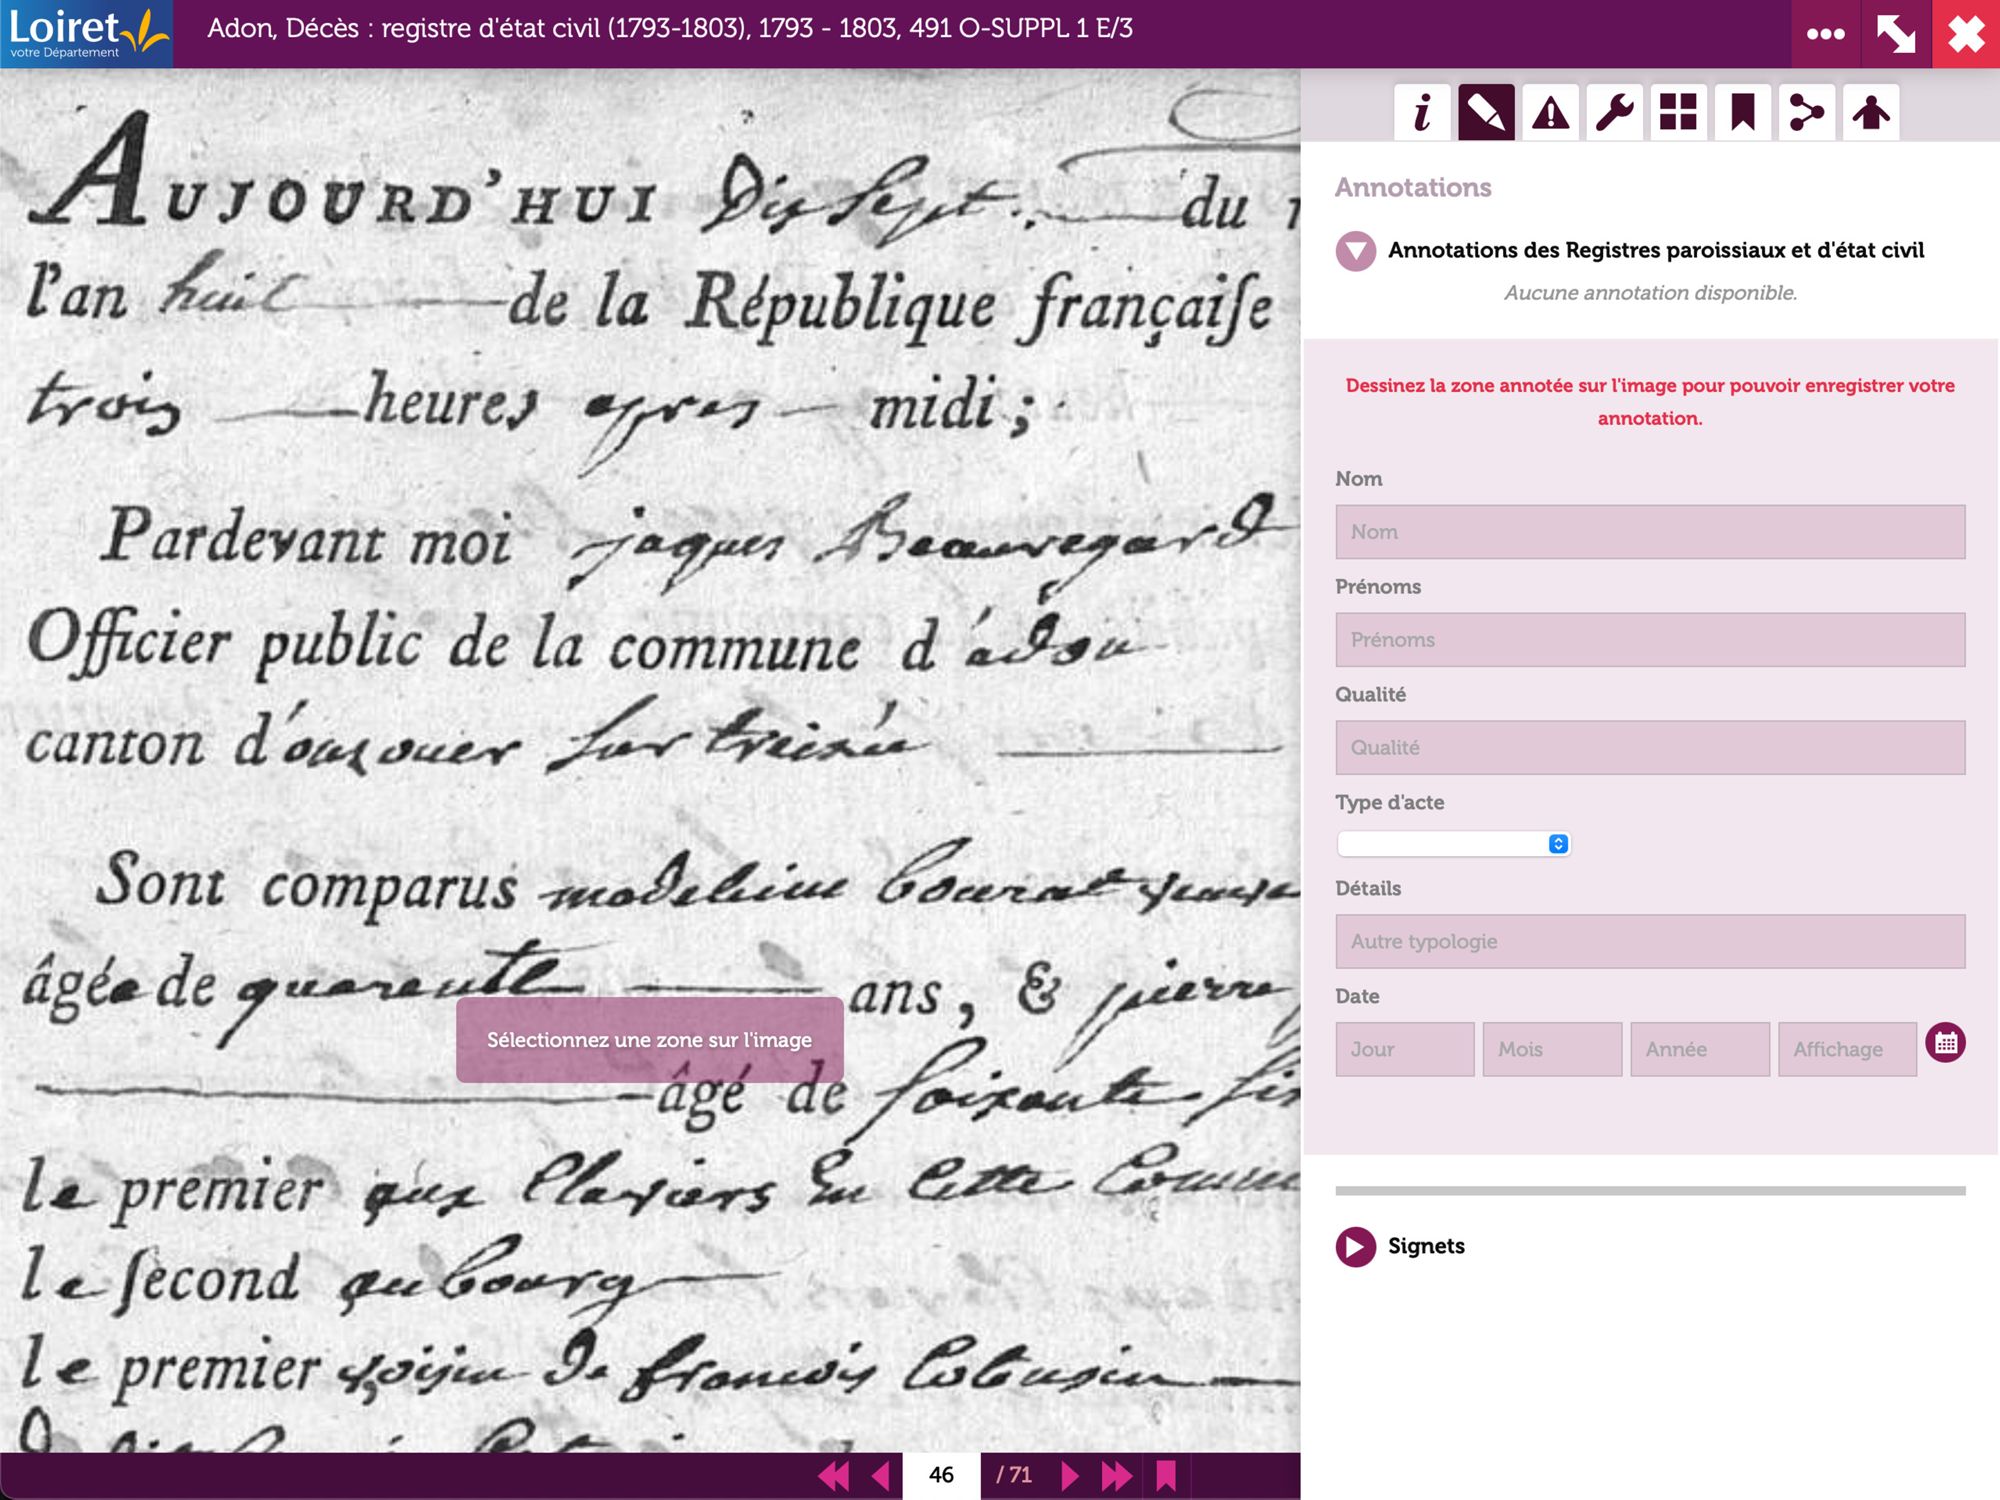 Loiret
votre Département
Adon, Décès : registre d'état civil (1793-1803), 1793 - 1803, 491 O-SUPPL 1 E/3
AUJOURD'HUI Dix Sept. du
l'an huit de la République françaiſe
trois heures apres midi ;
Pardevant moi jaques Beauregard
Officier public de la commune d'adon
canton d'ouzouer sur treizée
Sont comparus madeleine Bourat veuve
âgée de quarentte ans, & pierre
Sélectionnez une zone sur l'image
âgé de soixante six
le premier aux Claviers En Cette Commu
le ſecond au bourg
le premier voisin De francois
Annotations
Annotations des Registres paroissiaux et d'état civil
Aucune annotation disponible.
Dessinez la zone annotée sur l'image pour pouvoir enregistrer votre
annotation.
Nom
Nom
Prénoms
Prénoms
Qualité
Qualité
Type d'acte
Détails
Autre typologie
Date
Jour Mois Année Affichage
Signets
46 / 71